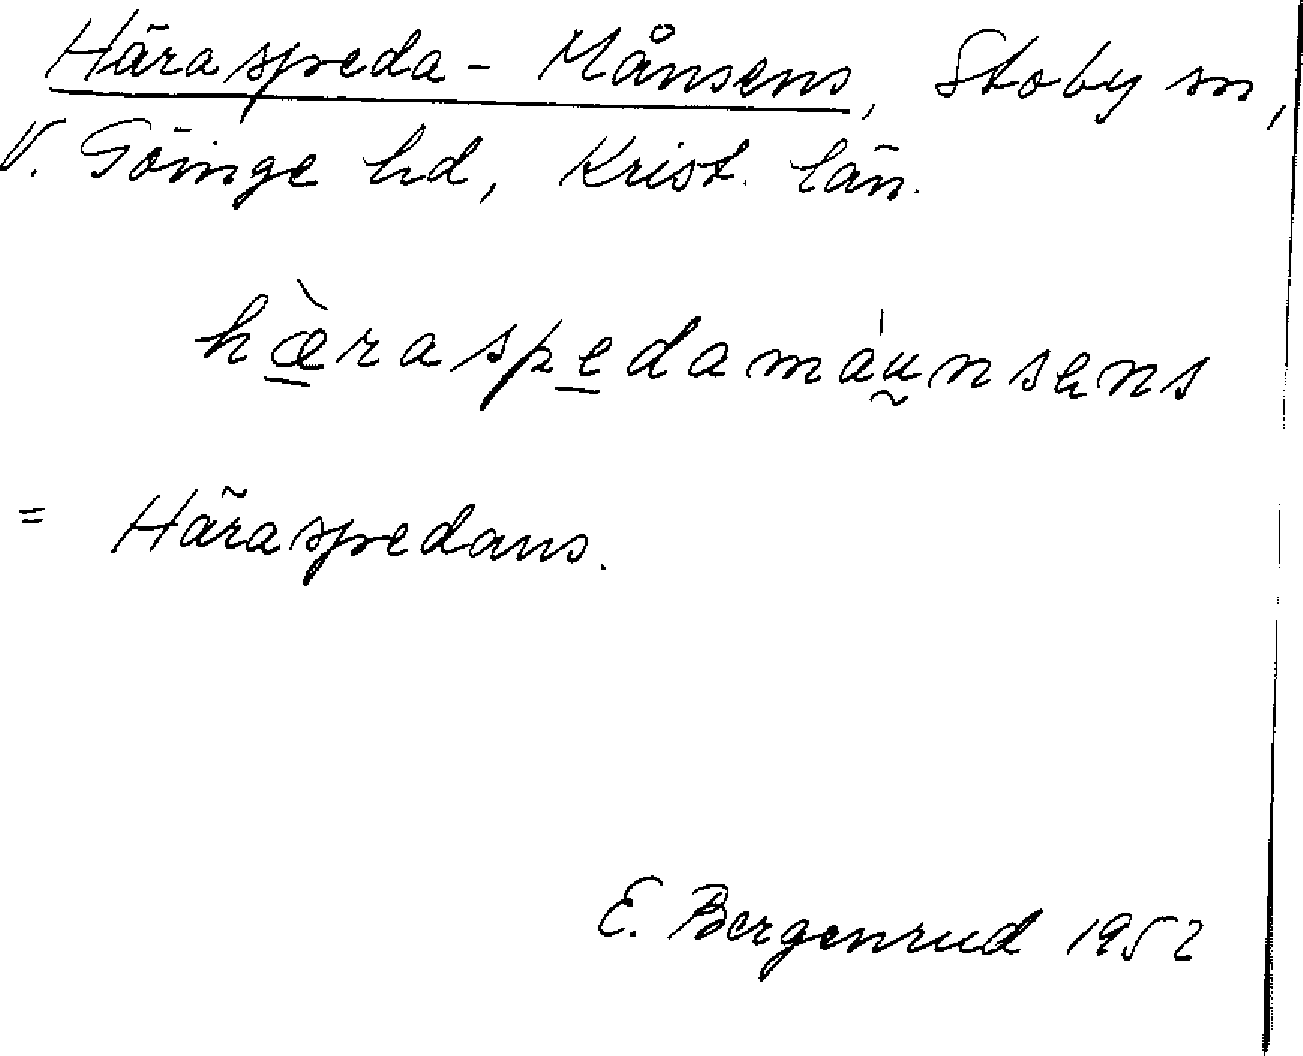 Häraspeda-Månsens, Stoby sn,
V. Göinge hd, Krist. län.
hæ̀raspedamáu̯nsens
= Häraspedans.
E. Bergenrud 1952